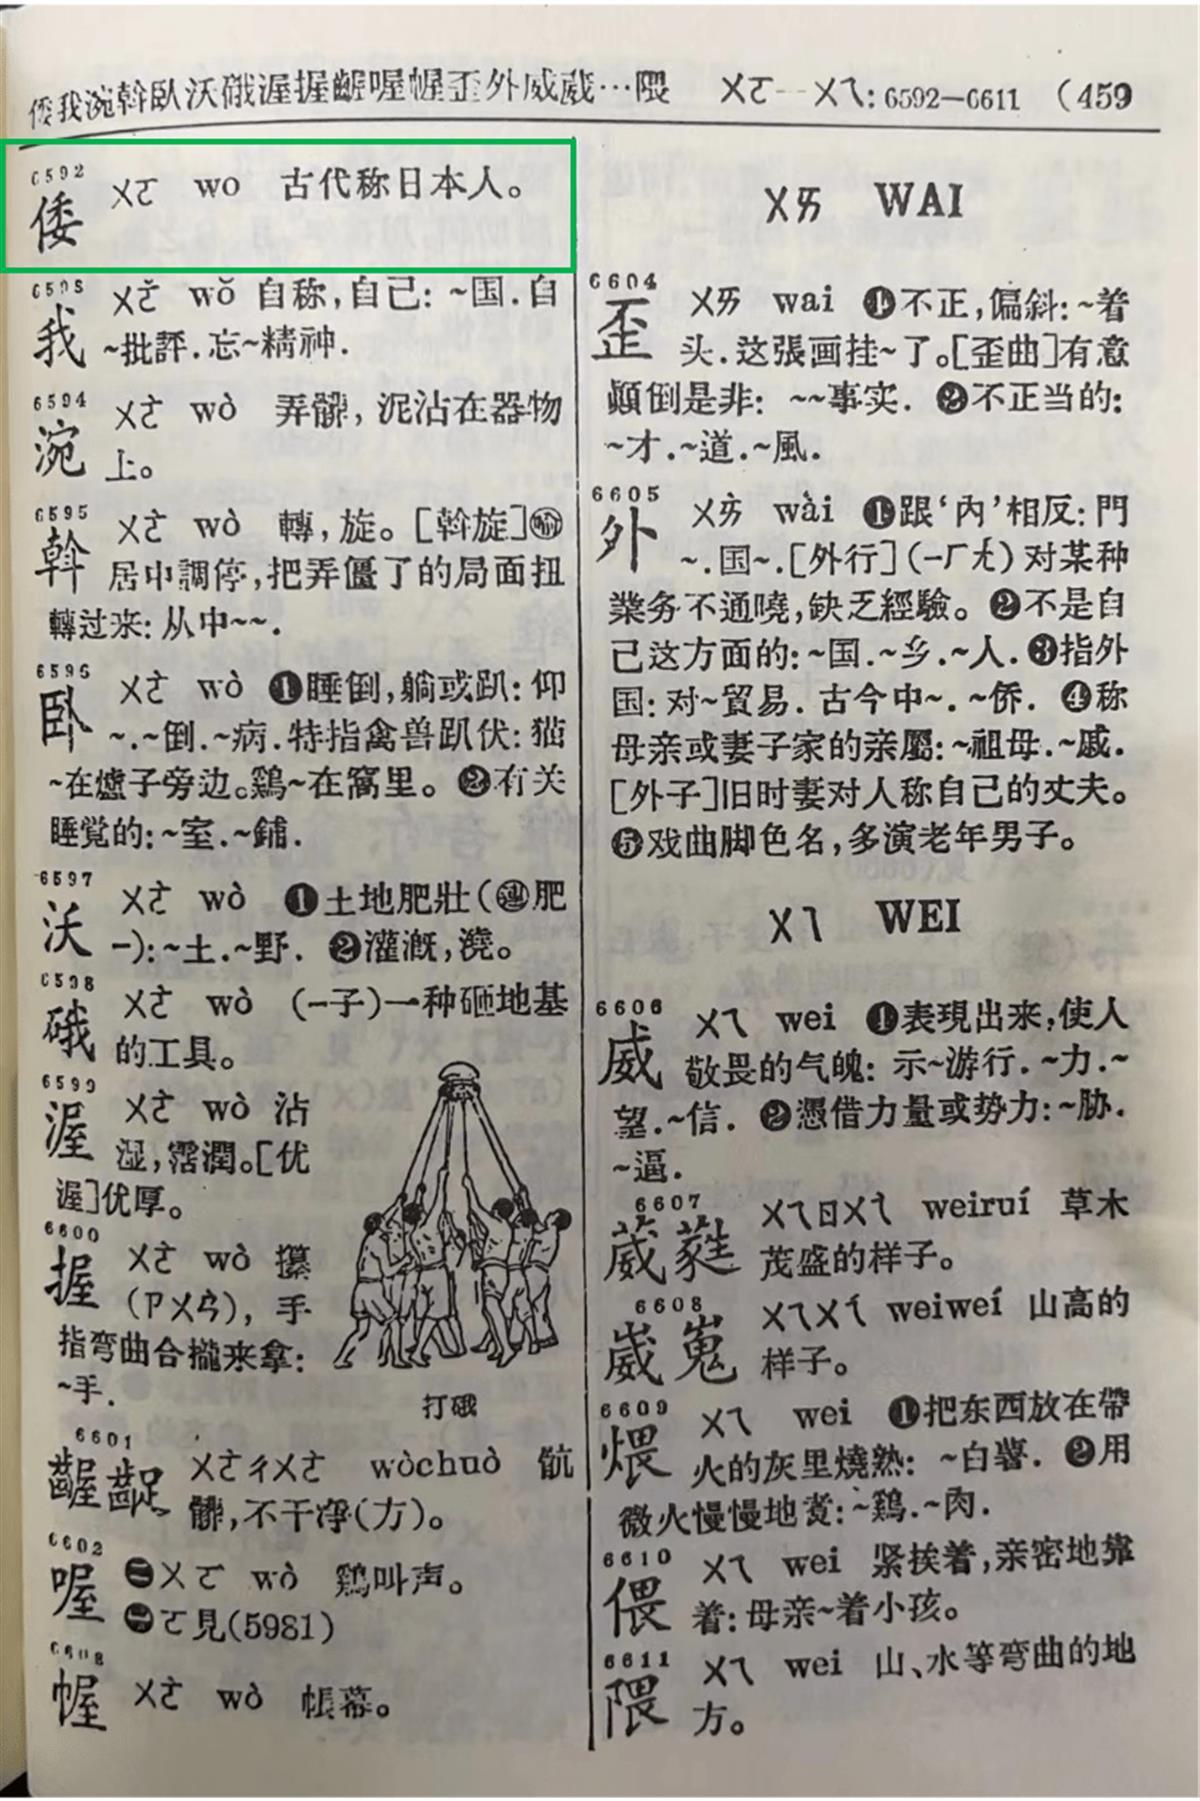 倭我涴斡臥沃硪渥握齷喔幄歪外威葳…隈 ㄨㄛ—ㄨㄟ: 6592—6611 (459
6592
倭 ㄨㄛ wo 古代称日本人。
6593
我 ㄨㄛˇ wǒ 自称,自己: ~国.自
~批評.忘~精神.
6594
涴 ㄨㄛˋ wò 弄髒, 泥沾在器物
上。
6595
斡 ㄨㄛˋ wò 轉, 旋。[斡旋]㊀喻
居中調停,把弄僵了的局面扭
轉过来: 从中~~.
6596
卧 ㄨㄛˋ wò ❶睡倒,躺或趴: 仰
~.~倒.~病.特指禽兽趴伏: 猫
~在爐子旁边。鷄~在窩里。 ❷有关
睡覚的: ~室.~鋪.
6597
沃 ㄨㄛˋ wò ❶土地肥壯(連肥
—): ~土.~野. ❷灌漑,澆。
6598
硪 ㄨㄛˋ wò (—子)一种砸地基
的工具。
6599
渥 ㄨㄛˋ wò 沾
湿,霑潤。[优
渥]优厚。
6600
握 ㄨㄛˋ wò 攥
(ㄗㄨㄢˋ), 手
指弯曲合攏来拿:
~手.
打硪
6601
齷齪 ㄨㄛˋㄔㄨㄛˋ wòchuò 骯
髒,不干净(方)。
6602
喔 ㊀ㄨㄛ wò 鷄叫声。
㊁ㄛ見(5981)
6603
幄 ㄨㄛˋ wò 帳幕。
ㄨㄞ WAI
6604
歪 ㄨㄞ wai ❶不正,偏斜: ~着
头.这張画挂~了。[歪曲]有意
顚倒是非: ~~事实. ❷不正当的:
~才.~道.~風.
6605
外 ㄨㄞˋ wài ❶跟‘内’相反: 門
~.国~.[外行](—ㄏㄤˊ)对某种
業务不通曉,缺乏經驗。 ❷不是自
己这方面的: ~国.~乡.~人. ❸指外
国: 对~貿易. 古今中~. ~侨. ❹称
母亲或妻子家的亲屬: ~祖母.~戚.
[外子]旧时妻对人称自己的丈夫。
❺戏曲脚色名,多演老年男子。
ㄨㄟ WEI
6606
威 ㄨㄟ wei ❶表現出来,使人
敬畏的气魄: 示~游行. ~力.~
望.~信. ❷憑借力量或势力: ~胁.
~逼.
6607
葳蕤 ㄨㄟㄖㄨㄟˊ weiruí 草木
茂盛的样子。
6608
崴嵬 ㄨㄟㄨㄟˊ weiweí 山高的
样子。
6609
煨 ㄨㄟ wei ❶把东西放在帶
火的灰里燒熟: ~白薯. ❷用
微火慢慢地煮: ~鷄.~肉.
6610
偎 ㄨㄟ wei 紧挨着,亲密地靠
着: 母亲~着小孩。
6611
隈 ㄨㄟ wei 山、水等弯曲的地
方。